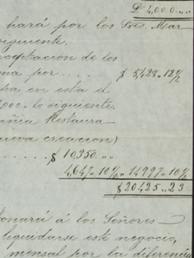 ₽ 4,000.„„
hará por los Sres. Mar
siguiente.
aceptacion de los
ma por .... $ 5,428.12½
ha en esta d
,000. lo siguiente.
añia Restaura
nueva creacion)
...... $ 10350.„„
4,647.10½ 14997.10½
$ 20,425.23
tonará á los Señores
liquidarse este negocio,
mensal por la diferenci